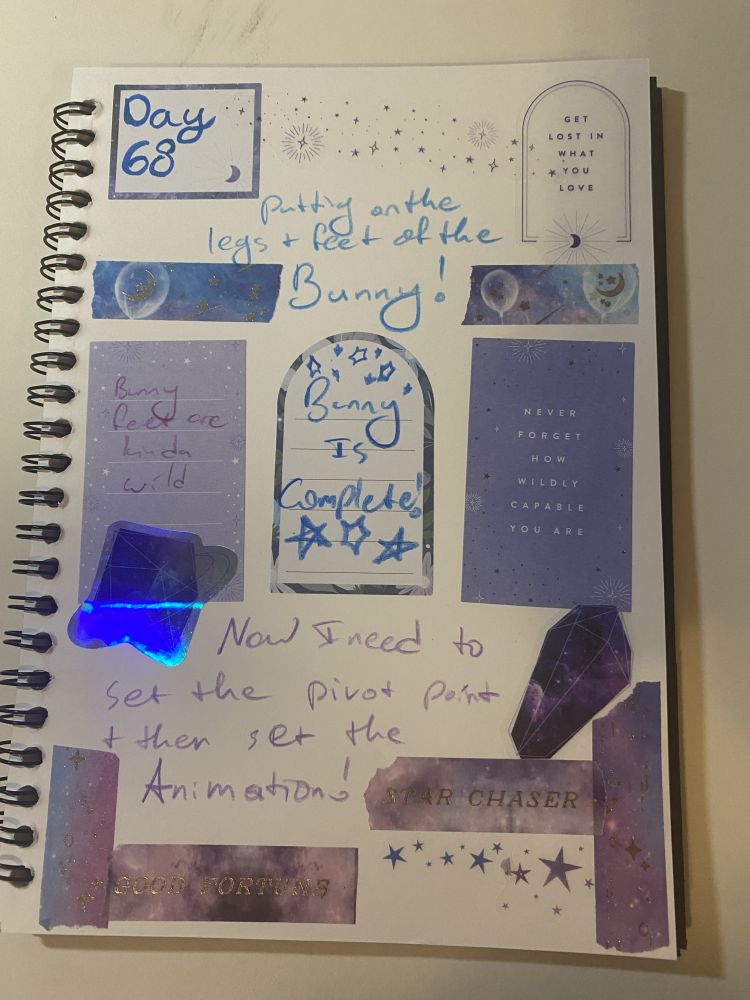 Day
68
GET
LOST IN
WHAT
YOU
LOVE
Putting on the
legs + feet of the
Bunny!
Bunny
feet are
kinda
wild
Bunny
Is
Complete!
NEVER
FORGET
HOW
WILDLY
CAPABLE
YOU ARE
Now I need to
set the pivot point
+ then set the
Animation!
STAR CHASER
GOOD FORTUNE